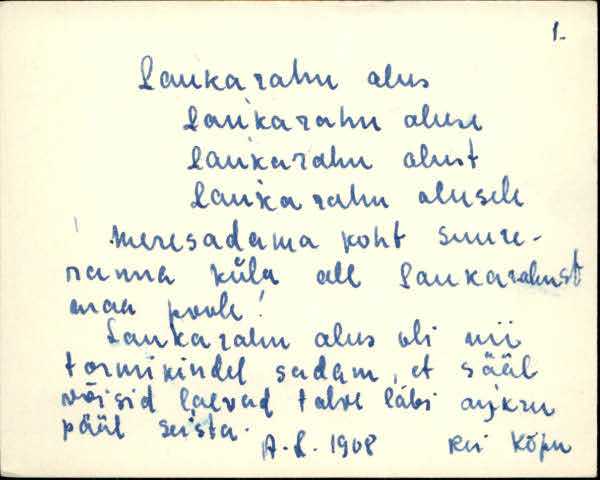 1.
Laukarahu alus
Laukarahu aluse
Laukarahu alust
Laukarahu alusele
Meresadama koht Suure-
ranna küla all Laukarahust
maa poole!
Laukarahu alus oli nii
tormikindel sadam, et sääl
võisid laevad talve läbi ankru
pääl seista.
A.L. 1908 Rei Kõpu